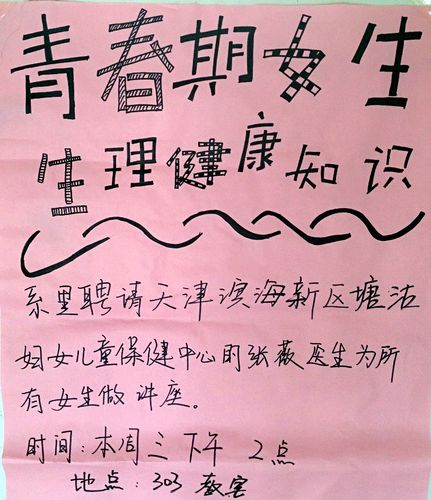 青春期女生
生理健康知识
系里聘请天津滨海新区塘沽
妇女儿童保健中心的张薇医生为所
有女生做讲座。
时间:本周三下午 2点
地点:303 教室